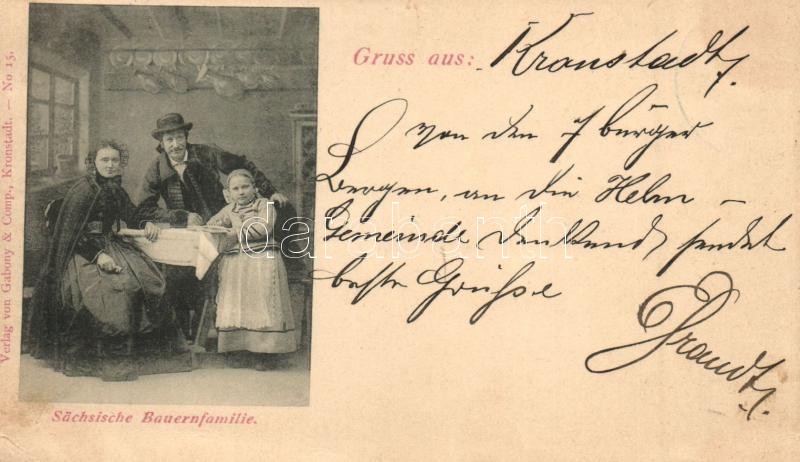 Gruss aus: Kronstadt
von den 7 bürger
Bergen, an die Helm –
Gemeinde denkend, sendet
beste Grüße
Brandt
Sächsische Bauernfamilie.
Verlag von Gabony & Comp., Kronstadt. — No 15.
darabanth